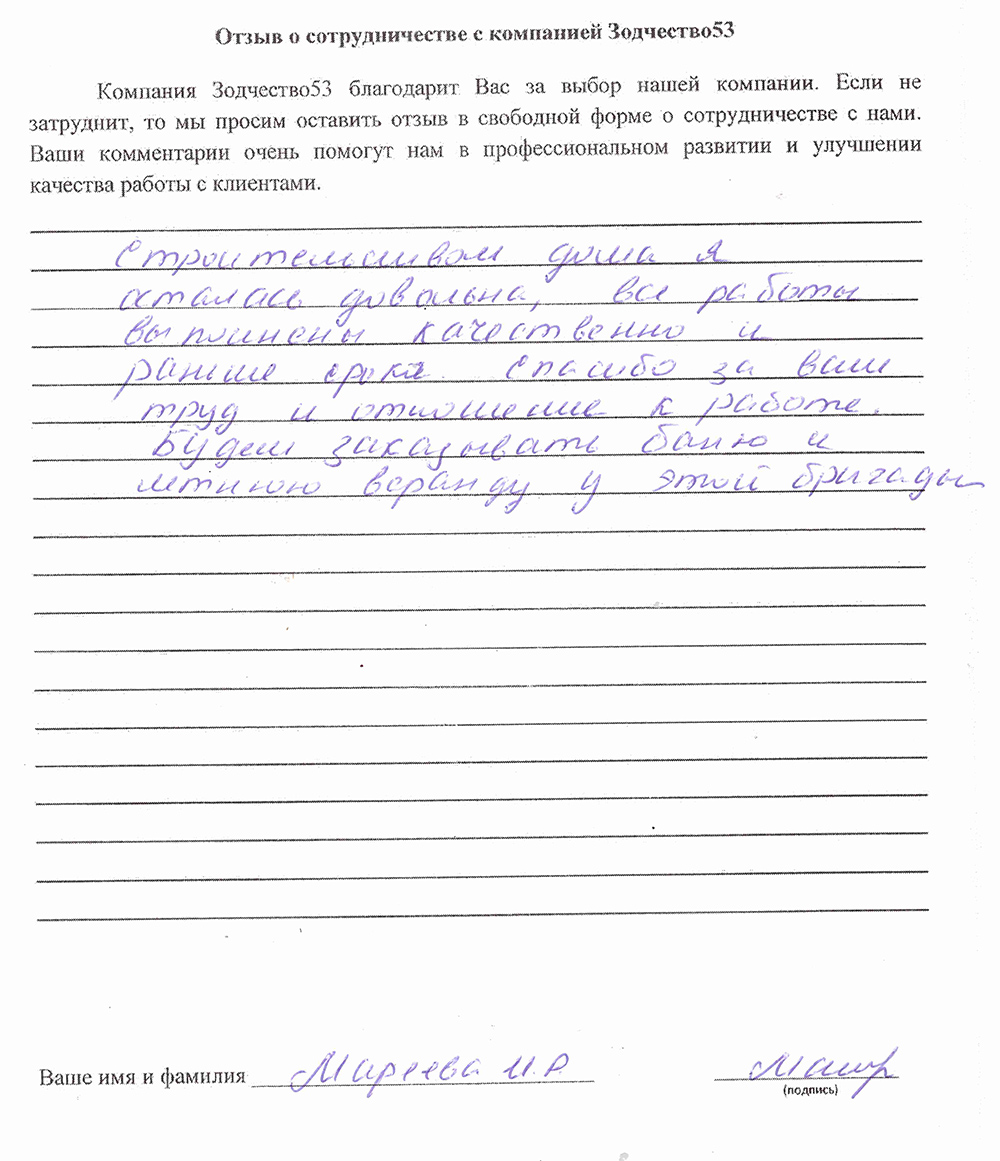 Отзыв о сотрудничестве с компанией Зодчество53
Компания Зодчество53 благодарит Вас за выбор нашей компании. Если не
затруднит, то мы просим оставить отзыв в свободной форме о сотрудничестве с нами.
Ваши комментарии очень помогут нам в профессиональном развитии и улучшении
качества работы с клиентами.
Строительством дома я
осталась довольна, все работы
выполнены качественно и
раньше срока. Спасибо за ваш
труд и отношение к работе.
Будем заказывать баню и
летнюю веранду у этой бригады
Ваше имя и фамилия Мареева И.Р.
(подпись)